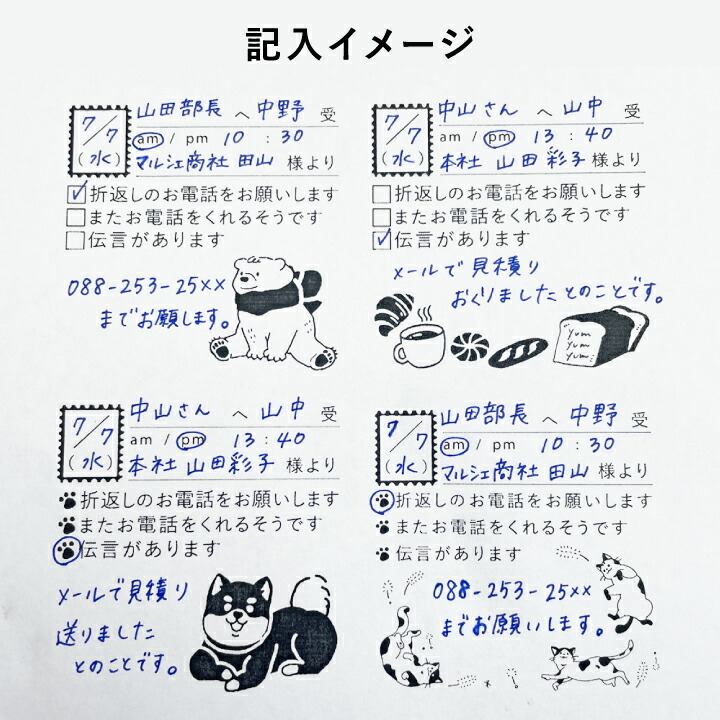 記入イメージ
山田部長 へ 中野 受
7/7
(水)
am / pm 10 : 30
マルシェ商社 田山 様より
折返しのお電話をお願いします
またお電話をくれるそうです
伝言があります
088-253-25××
までお願します。
中山さん へ 山中 受
7/7
(水)
am / pm 13 : 40
本社 山田彩子 様より
折返しのお電話をお願いします
またお電話をくれるそうです
伝言があります
メールで見積り
おくりましたとのことです。
Yum
Yum
Yum
中山さん へ 山中 受
7/7
(水)
am / pm 13 : 40
本社 山田彩子 様より
折返しのお電話をお願いします
またお電話をくれるそうです
伝言があります
メールで見積り
送りました
とのことです。
山田部長 へ 中野 受
7/7
(水)
am / pm 10 : 30
マルシェ商社 田山 様より
折返しのお電話をお願いします
またお電話をくれるそうです
伝言があります
088-253-25××
までお願いします。